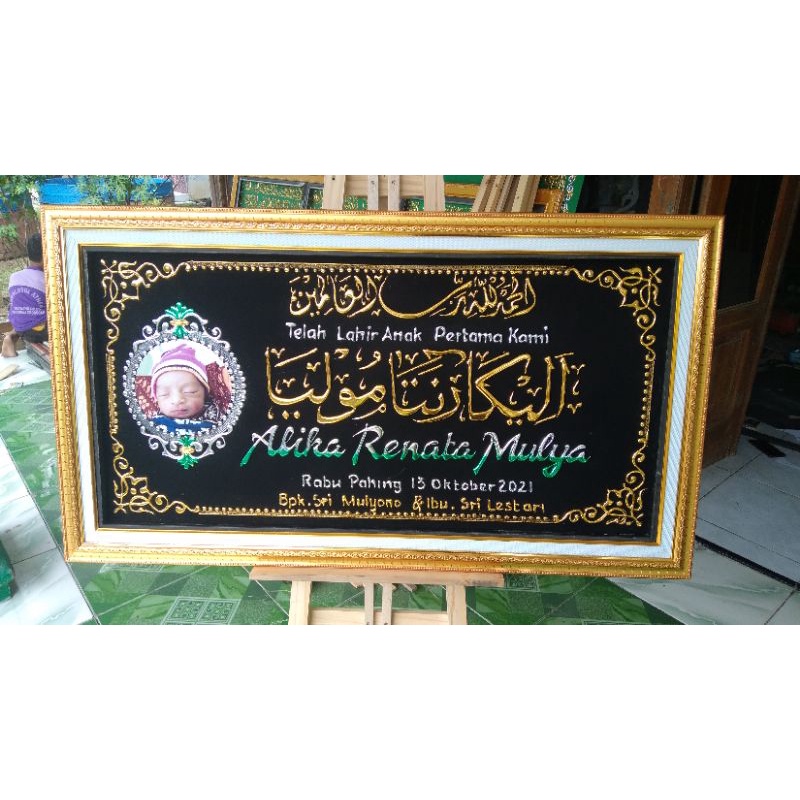 الحمد لله رب العالمين
Telah Lahir Anak Pertama Kami
اليكا رنتا موليا
Alika Renata Mulya
Rabu Pahing 13 Oktober 2021
Bpk. Sri Mulyono & Ibu. Sri Lestari